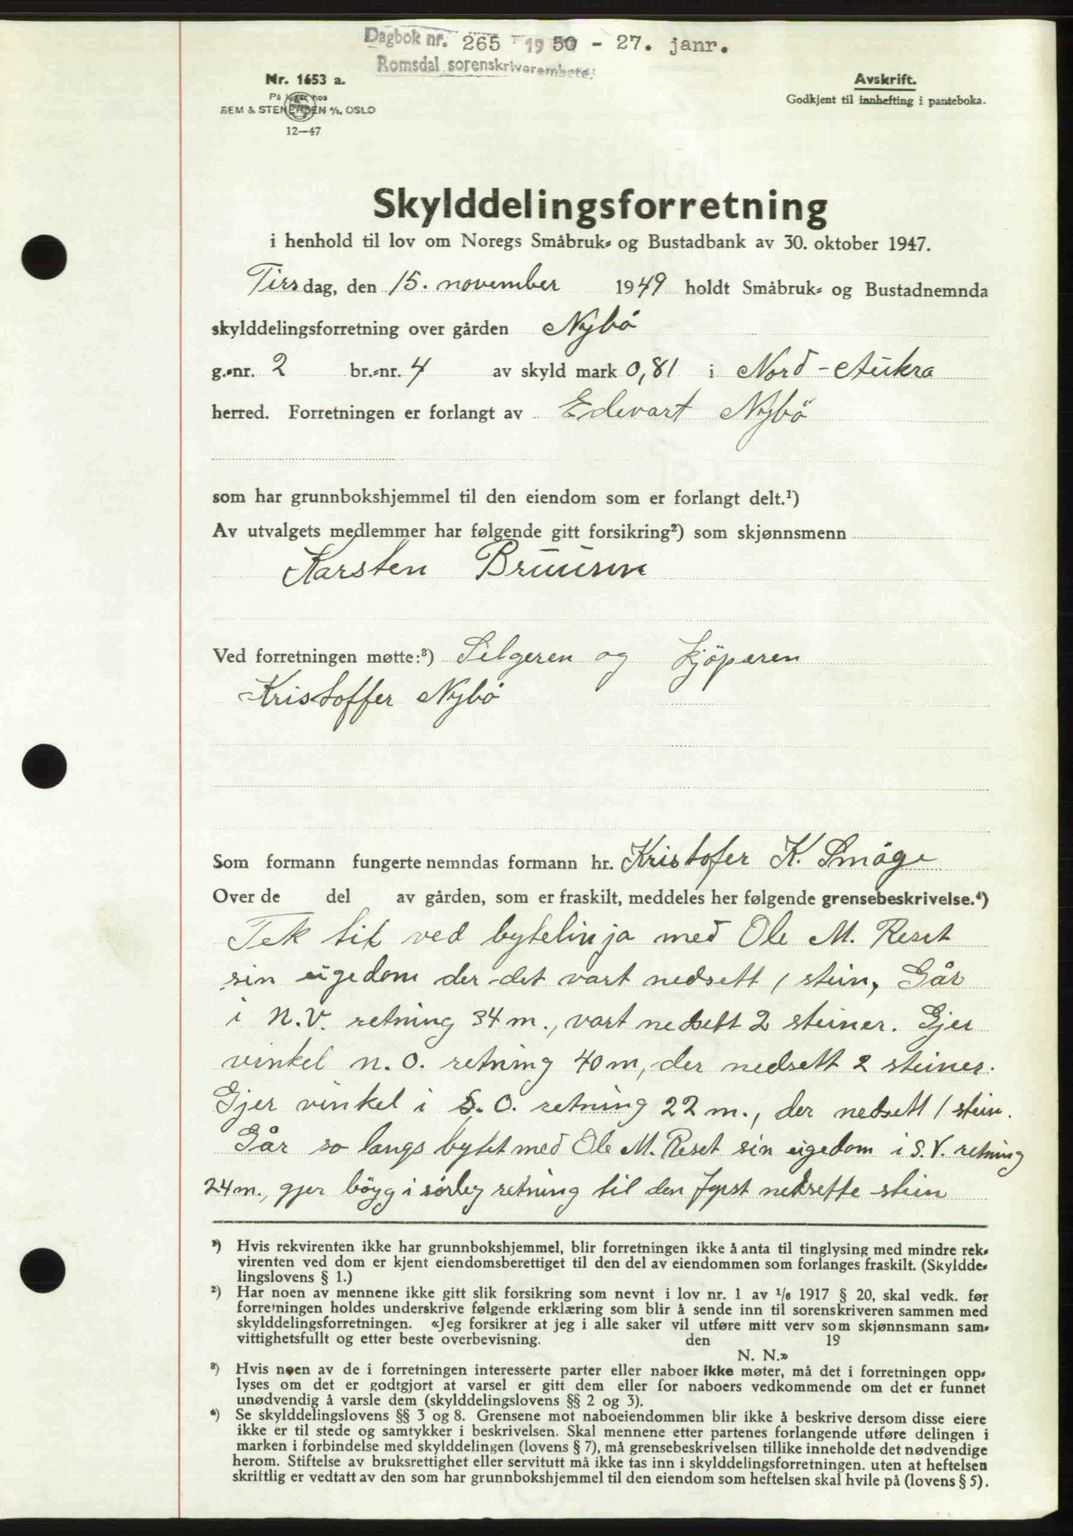 Dagbok nr. 265 - 1950 - 27. janr.
Romsdal sorenskriverembete.
Nr. 1653 a.
På lager hos
SEM & STENERSEN A/S. OSLO
12—47
Avskrift.
Godkjent til innhefting i panteboka.
Skylddelingsforretning
i henhold til lov om Noregs Småbruk- og Bustadbank av 30. oktober 1947.
Tirsdag, den 15. november 1949 holdt Småbruk- og Bustadnemnda
skylddelingsforretning over gården Nybö
g.-nr. 2 br.-nr. 4 av skyld mark 0,81 i Nord-Aukra
herred. Forretningen er forlangt av Edevart Nybö
som har grunnbokshjemmel til den eiendom som er forlangt delt.¹)
Av utvalgets medlemmer har følgende gitt forsikring²) som skjønnsmenn
Karsten Bruusen
Ved forretningen møtte:³) Selgeren og kjöperen
Kristoffer Nybö
Som formann fungerte nemndas formann hr. Kristofer K. Smöge
Over de del av gården, som er fraskilt, meddeles her følgende grensebeskrivelse.⁴)
Tek til ved bytelinja med Ole M. Reset
sin eigedom der det vart nedsett 1 stein, Går
i N.V. retning 34 m., vart nedsett 2 steiner. Gjer
vinkel n.o. retning 40 m, der nedsett 2 steiner.
Gjer vinkel i S.O. retning 22 m., der nedsett 1 stein.
Går so langs bytet med Ole M. Reset sin eigedom i S.V. retning
24 m., gjer böyg i sörleg retning til den fyrst nedsette stein
¹) Hvis rekvirenten ikke har grunnbokshjemmel, blir forretningen ikke å anta til tinglysing med mindre rek-
virenten ved dom er kjent eiendomsberettiget til den del av eiendommen som forlanges fraskilt. (Skyldde-
lingslovens § 1.)
²) Har noen av mennene ikke gitt slik forsikring som nevnt i lov nr. 1 av 1/6 1917 § 20, skal vedk. før
forretningen holdes underskrive følgende erklæring som blir å sende inn til sorenskriveren sammen med
skylddelingsforretningen. «Jeg forsikrer at jeg i alle saker vil utføre mitt verv som skjønnsmann sam-
vittighetsfullt og etter beste overbevisning. den 19
N. N.»
³) Hvis noen av de i forretningen interesserte parter eller naboer ikke møter, må det i forretningen opp-
lyses om det er godtgjort at varsel er gitt dem eller for naboers vedkommende om det er funnet
unødvendig å varsle dem (skylddelingslovens §§ 2 og 3).
⁴) Se skylddelingslovens §§ 3 og 8. Grensene mot naboeiendommen blir ikke å beskrive dersom disse eiere
ikke er til stede og samtykker i beskrivelsen. Skal mennene etter partenes forlangende utføre delingen i
marken i forbindelse med skylddelingen (lovens § 7), må grensebeskrivelsen tillike inneholde det nødvendige
herom. Stiftelse av bruksrettighet eller servitutt må ikke tas inn i skylddelingsforretningen. uten at heftelsen
skriftlig er vedtatt av den som har grunnbokshjemmel til den eiendom som heftelsen skal hvile på (lovens § 5).